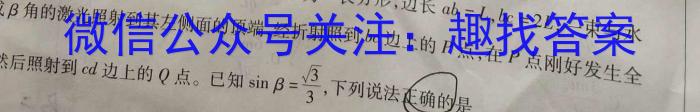 边长ab=L, bc=2L, 一束与水
β角的激光照射到其左侧面的顶端,经折射照到bc边上的P点,在P点刚好发生全
然后照射到cd边上的Q点。已知 sin β=√3/3,下列说法正确的是
微信公众号关注:趣找答案